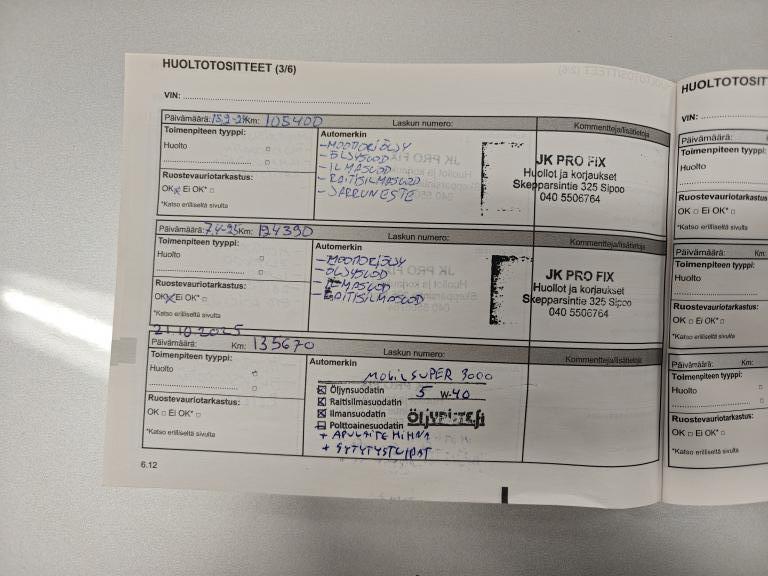 HUOLTOTOSITTEET (3/6)
VIN:
Päivämäärä: 15.2-24 Km: 105400 Laskun numero: Kommentteja/lisätietoja
Toimenpiteen tyyppi:
Huolto
Ruostevauriotarkastus:
OK Ei OK*
*Katso erilliseltä sivulta
Automerkin
-MOOTTORIÖLJY
-ÖLJYSUOD
-ILMASUOD
-RAITISILMASUOD
-JARRUNESTE
JK PRO FIX
Huollot ja korjaukset
Skepparsintie 325 Sipoo
040 5506764
Päivämäärä: 7.4-25 Km: 124390 Laskun numero: Kommentteja/lisätietoja
Toimenpiteen tyyppi:
Huolto
Ruostevauriotarkastus:
OK Ei OK*
*Katso erilliseltä sivulta
Automerkin
-MOOTTORIÖLJY
-ÖLJYSUOD
-ILMASUOD
-RAITISILMASUOD
JK PRO FIX
Huollot ja korjaukset
Skepparsintie 325 Sipoo
040 5506764
21.10.2025
Päivämäärä: Km: 135670 Laskun numero: Kommentteja/lisätietoja
Toimenpiteen tyyppi:
Huolto
Ruostevauriotarkastus:
OK Ei OK*
*Katso erilliseltä sivulta
Automerkin
MOBIL SUPER 3000
Öljynsuodatin 5 W-40
Raitisilmasuodatin
Ilmansuodatin
Polttoainesuodatin
+ APULAITE HIHNA
+ SYTYTYSTULPAT
6.12
HUOLTOTOSITT
VIN:
Päivämäärä:
Toimenpiteen tyyppi:
Huolto
Ruostevauriotarkastus:
OK Ei OK*
*Katso erilliseltä sivulta
Päivämäärä: Km:
Toimenpiteen tyyppi:
Huolto
Ruostevauriotarkastus:
OK Ei OK*
*Katso erilliseltä sivulta
Päivämäärä: Km:
Toimenpiteen tyyppi:
Huolto
Ruostevauriotarkastus:
OK Ei OK*
*Katso erilliseltä sivulta